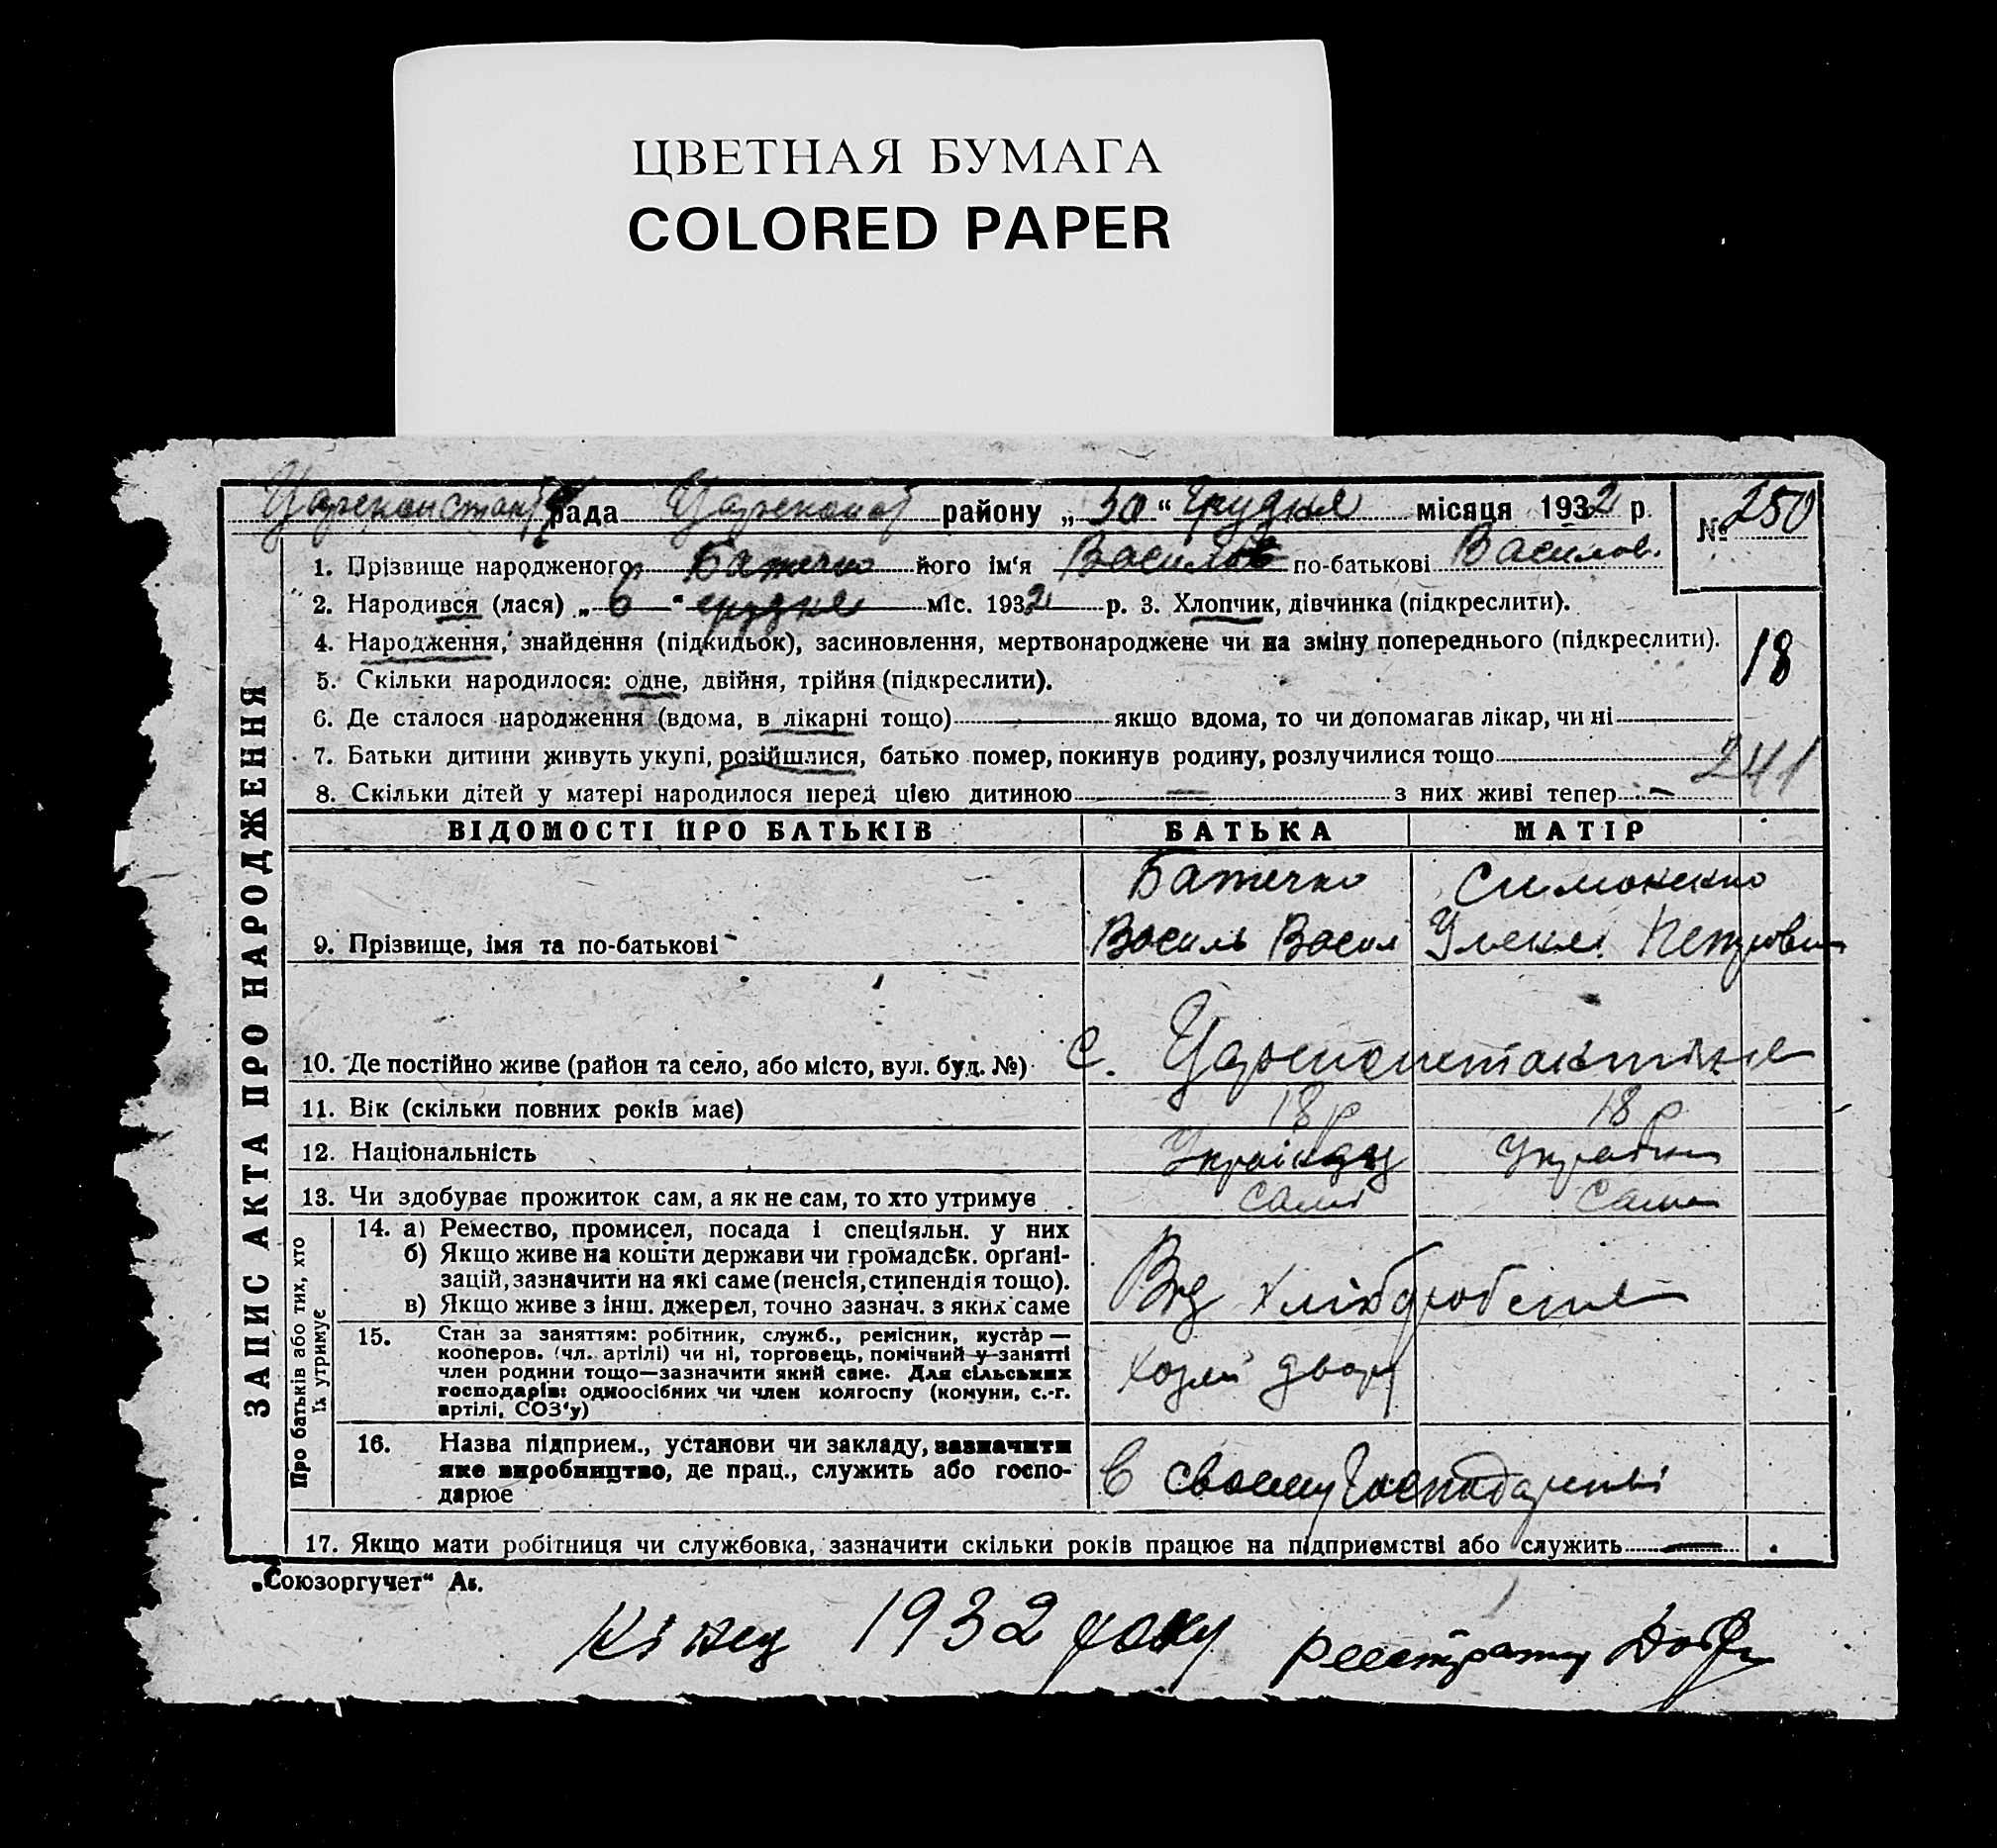 ЦВЕТНАЯ БУМАГА
COLORED PAPER
рада району „30“ Грудня місяця 1932 р. № 250
1. Прізвище народженого Батечко його ім‘я по-батькові Василов.
2. Народився (лася) „6“ грудня міс. 1932 р. 3. Хлопчик, дівчинка (підкреслити).
4. Народження, знайдення (підкидьок), засиновлення, мертвонароджене чи на зміну попереднього (підкреслити).
18
5. Скільки народилося: одне, двійня, трійня (підкреслити).
6. Де сталося народження (вдома, в лікарні тощо) — якщо вдома, то чи допомагав лікар, чи ні
7. Батьки дитини живуть укупі, розійшлися, батько помер, покинув родину, розлучилися тощо
241
8. Скільки дітей у матері народилося перед цією дитиною — з них живі тепер —
ЗАПИС АКТА ПРО НАРОДЖЕННЯ
ВІДОМОСТІ ПРО БАТЬКІВ БАТЬКА МАТІР
Батечко Симоненко
9. Прізвище, імя та по-батькові Василь Васил Петрівн
10. Де постійно живе (район та село, або місто, вул. буд. №) с. Цареконстантинів
11. Вік (скільки повних років має) 18 р 18 р
12. Національність Українец Українка
13. Чи здобуває прожиток сам, а як не сам, то хто утримує сам сама
Про батьків або тих, хто їх утримує
14. а) Ремество, промисел, посада і спеціяльн. у них
б) Якщо живе на кошти держави чи громадськ. орґані-
зацій, зазначити на які саме (пенсія, стипендія тощо).
в) Якщо живе з інш. джерел, точно зазнач. з яких саме
Від хліборобства
15. Стан за заняттям: робітник, служб., ремісник, кустар —
кооперов. (чл. артілі) чи ні, торговець, помічний у занятті
член родини тощо—зазначити який саме. Для сільських
господарів: одноосібних чи член колгоспу (комуни, с.-г.
артілі, СОЗ‘у)
двору
16. Назва підприєм., установи чи закладу, зазначити
яке виробництво, де прац., служить або госпо-
дарює
В своему Господарстві
17. Якщо мати робітниця чи службовка, зазначити скільки років працює на підприємстві або служить —
„Союзоргучет“ Аз.
Кінец 1932 року